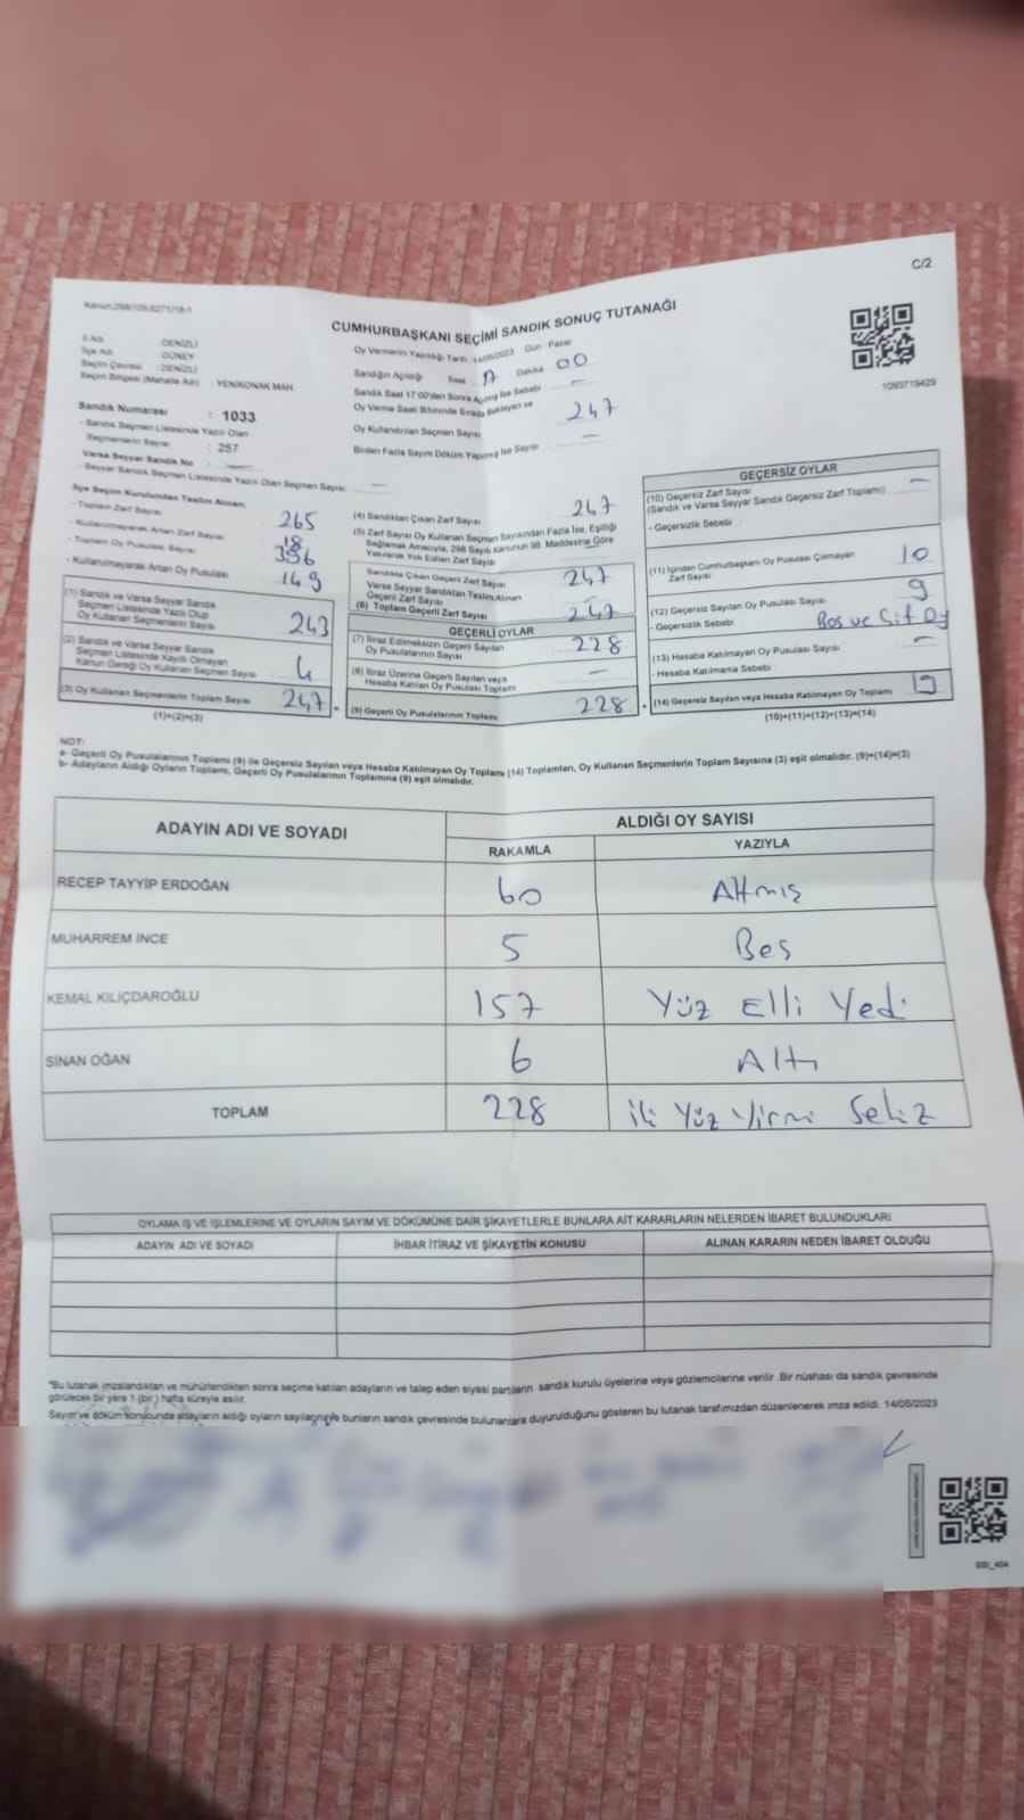 C/2
CUMHURBAŞKANI SEÇİMİ SANDIK SONUÇ TUTANAĞI
İl Adı : DENİZLİ
İlçe Adı : GÜNEY
Seçim Çevresi : DENİZLİ
Seçim Bölgesi (Mahalle Adı) : YENİKONAK MAH.
Sandık Numarası : 1033
- Sandık Seçmen Listesinde Yazılı Olan
Seçmenlerin Sayısı : 257
Varsa Seyyar Sandık No
- Seyyar Sandık Seçmen Listesinde Yazılı Olan Seçmen Sayısı
İlçe Seçim Kurulundan Teslim Alınan
- Toplam Zarf Sayısı 265
- Kullanılmayarak Artan Zarf Sayısı 18
- Toplam Oy Pusulası Sayısı 396
- Kullanılmayarak Artan Oy Pusulası 149
(1) Sandık ve Varsa Seyyar Sandık
Seçmen Listesinde Yazılı Olup
Oy Kullanan Seçmenlerin Sayısı 243
(2) Sandık ve Varsa Seyyar Sandık
Seçmen Listesinde Kayıtlı Olmayan
Kanun Gereği Oy Kullanan Seçmen Sayısı 4
(3) Oy Kullanan Seçmenlerin Toplam Sayısı 247
(1)+(2)=(3)
Oy Vermenin Yapıldığı Tarih : 14/05/2023 Gün : Pazar
Sandığın Açılışı Saat Dakika 00
Oy Kullandırılan Seçmen Sayısı 247
Birden Fazla Sayım Döküm Yapılmış İse Sayısı —
(4) Sandıktan Çıkan Zarf Sayısı 247
(5) Zarf Sayısı Oy Kullanan Seçmen Sayısından Fazla İse, Eşitliği
Sağlamak Amacıyla, 298 Sayılı Kanunun 98. Maddesine Göre
Yakılarak Yok Edilen Zarf Sayısı
Sandıkta Çıkan Geçerli Zarf Sayısı 247
Varsa Seyyar Sandıktan Teslim Alınan
Geçerli Zarf Sayısı
(6) Toplam Geçerli Zarf Sayısı 247
GEÇERLİ OYLAR
(7) İtiraz Edilmeksizin Geçerli Sayılan
Oy Pusulalarının Sayısı 228
(8) İtiraz Üzerine Geçerli Sayılan veya
Hesaba Katılan Oy Pusulası Toplamı —
(9) Geçerli Oy Pusulalarının Toplamı 228
GEÇERSİZ OYLAR
(10) Geçersiz Zarf Sayısı —
(Sandık ve Varsa Seyyar Sandık Geçersiz Zarf Toplamı)
- Geçersizlik Sebebi
(11) İçinden Cumhurbaşkanı Oy Pusulası Çıkmayan
Zarf Sayısı 10
(12) Geçersiz Sayılan Oy Pusulası Sayısı 9
- Geçersizlik Sebebi Bos ve Çift Oy
(13) Hesaba Katılmayan Oy Pusulası Sayısı —
- Hesaba Katılmama Sebebi
(14) Geçersiz Sayılan veya Hesaba Katılmayan Oy Toplamı 19
(10)+(11)+(12)+(13)=(14)
NOT:
a- Geçerli Oy Pusulalarının Toplamı (9) ile Geçersiz Sayılan veya Hesaba Katılmayan Oy Toplamı (14) Toplamları, Oy Kullanan Seçmenlerin Toplam Sayısına (3) eşit olmalıdır. (9)+(14)=(3)
b- Adayların Aldığı Oyların Toplamı, Geçerli Oy Pusulalarının Toplamına (9) eşit olmalıdır.
ADAYIN ADI VE SOYADI ALDIĞI OY SAYISI
RAKAMLA YAZIYLA
RECEP TAYYİP ERDOĞAN 60 Altmış
MUHARREM İNCE 5 Bes
KEMAL KILIÇDAROĞLU 157 Yüz Elli Yedi
SİNAN OĞAN 6 Altı
TOPLAM 228 iki Yüz Yirmi Sekiz
OYLAMA İŞ VE İŞLEMLERİNE VE OYLARIN SAYIM VE DÖKÜMÜNE DAİR ŞİKAYETLERLE BUNLARA AİT KARARLARIN NELERDEN İBARET BULUNDUKLARI
ADAYIN ADI VE SOYADI İHBAR İTİRAZ VE ŞİKAYETİN KONUSU ALINAN KARARIN NEDEN İBARET OLDUĞU
"Bu tutanak imzalandıktan ve mühürlendikten sonra seçime katılan adayların ve talep eden siyasi partilerin sandık kurulu üyelerine veya gözlemcilerine verilir. Bir nüshası da sandık çevresinde
görülecek bir yere 1 (bir) hafta süreyle asılır.
Sayım ve döküm sonucunda adayların aldığı oyların sayılarıyla bunların sandık çevresinde bulunanlara duyurulduğunu gösteren bu tutanak tarafımızdan düzenlenerek imza edildi. 14/05/2023